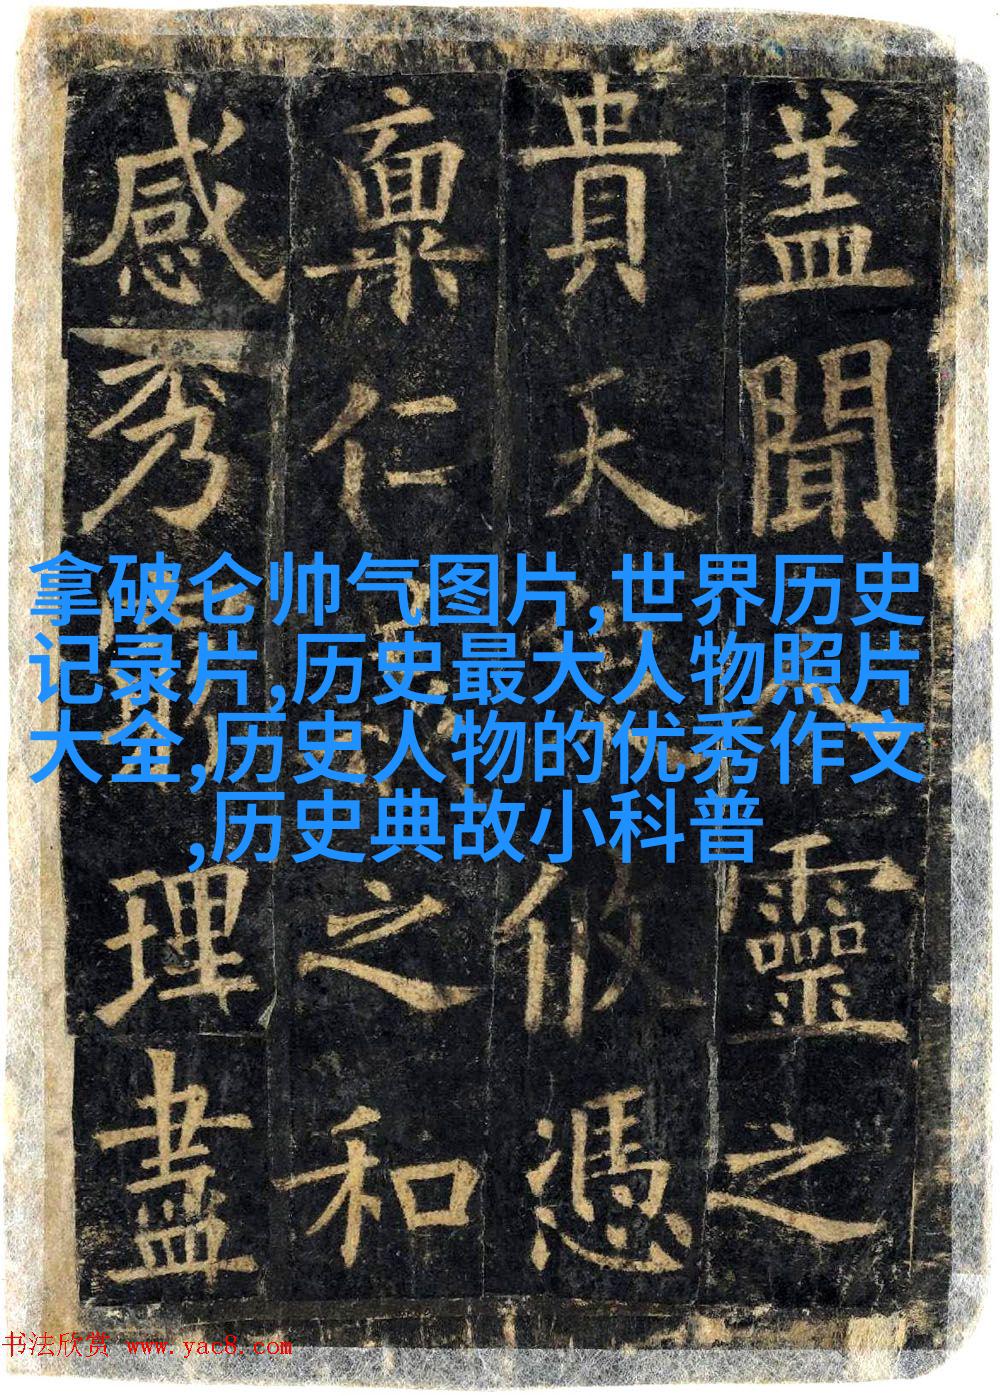 盖聞靈之
貴天攸憑
稟仁之和
感秀理盡
拿破仑帅气图片,世界历史
记录片,历史最大人物照片
大全,历史人物的优秀作文
,历史典故小科普
书法欣赏 www.yac8.com